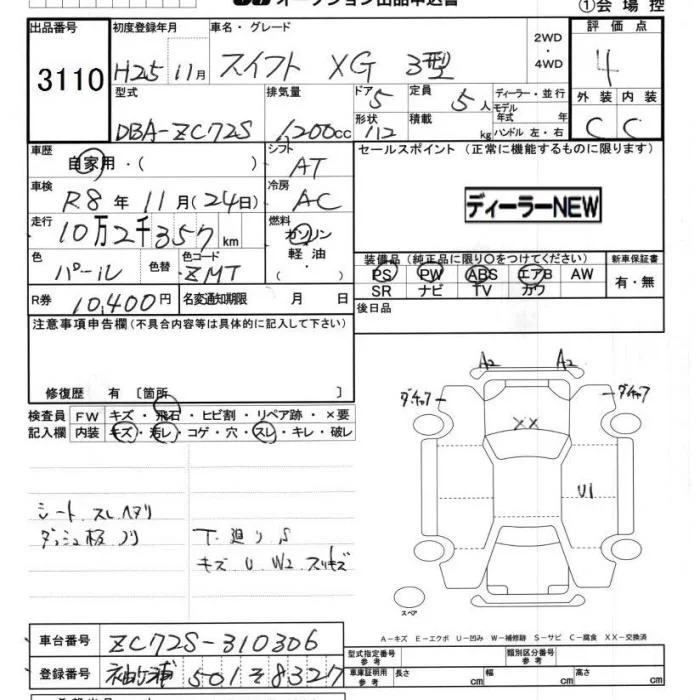 オークション出品申込書
①会場控
出品番号 3110
初度登録年月 H25 11月
車名・グレード スイフト XG 3型
2WD・4WD
評価点 4
型式 DBA-ZC72S
排気量 1,200cc
ドア 5
形状 112
定員 5人
積載 kg
ディーラー・並行
モデル年式 年
ハンドル 左・右
外装 C
内装 C
車歴 自家用・( )
シフト AT
セールスポイント (正常に機能するものに限ります)
車検 R8年11月(24日)
冷房 AC
ディーラーNEW
走行 10万2千357km
燃料 ガソリン 軽油・( )
色 パール 色替
色コード ZMT
装備品(純正品に限り○をつけてください)
新車保証書
PS PW ABS エアB AW
SR ナビ TV カワ
有・無
R券 10,400円
名変通知期限 月 日
後日品
注意事項申告欄(不具合内容等は具体的に記入して下さい)
修復歴 有 〔箇所 〕
検査員記入欄
FW キズ・飛石・ヒビ割・リペア跡・×要
内装 キズ・汚レ・コゲ・穴・スレ・キレ・破レ
A2 A2
XX
U1
シート スレ ヘタリ
ダッシュ板 ノリ
下廻り S
キズ U W2 スリキズ
スペア
A-キズ E-エクボ U-凹み W-補修跡 S-サビ C-腐食 XX-交換済
車台番号 ZC72S-310306
型式指定番号 参考
類別区分番号 参考
登録番号 袖ヶ浦 501 そ 8327
車庫証明用 参考 長さ cm 幅 cm 高さ cm